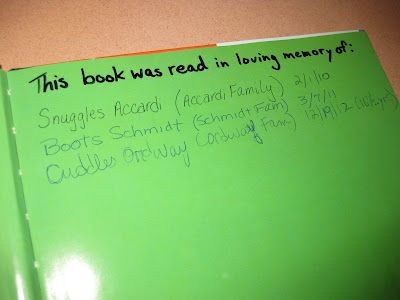 This book was read in loving memory of:
Snuggles Accardi (Accardi Family) 2/1/10
Boots Schmidt (Schmidt Fam) 3/7/11
Cuddles Ordway (Ordway Fam)